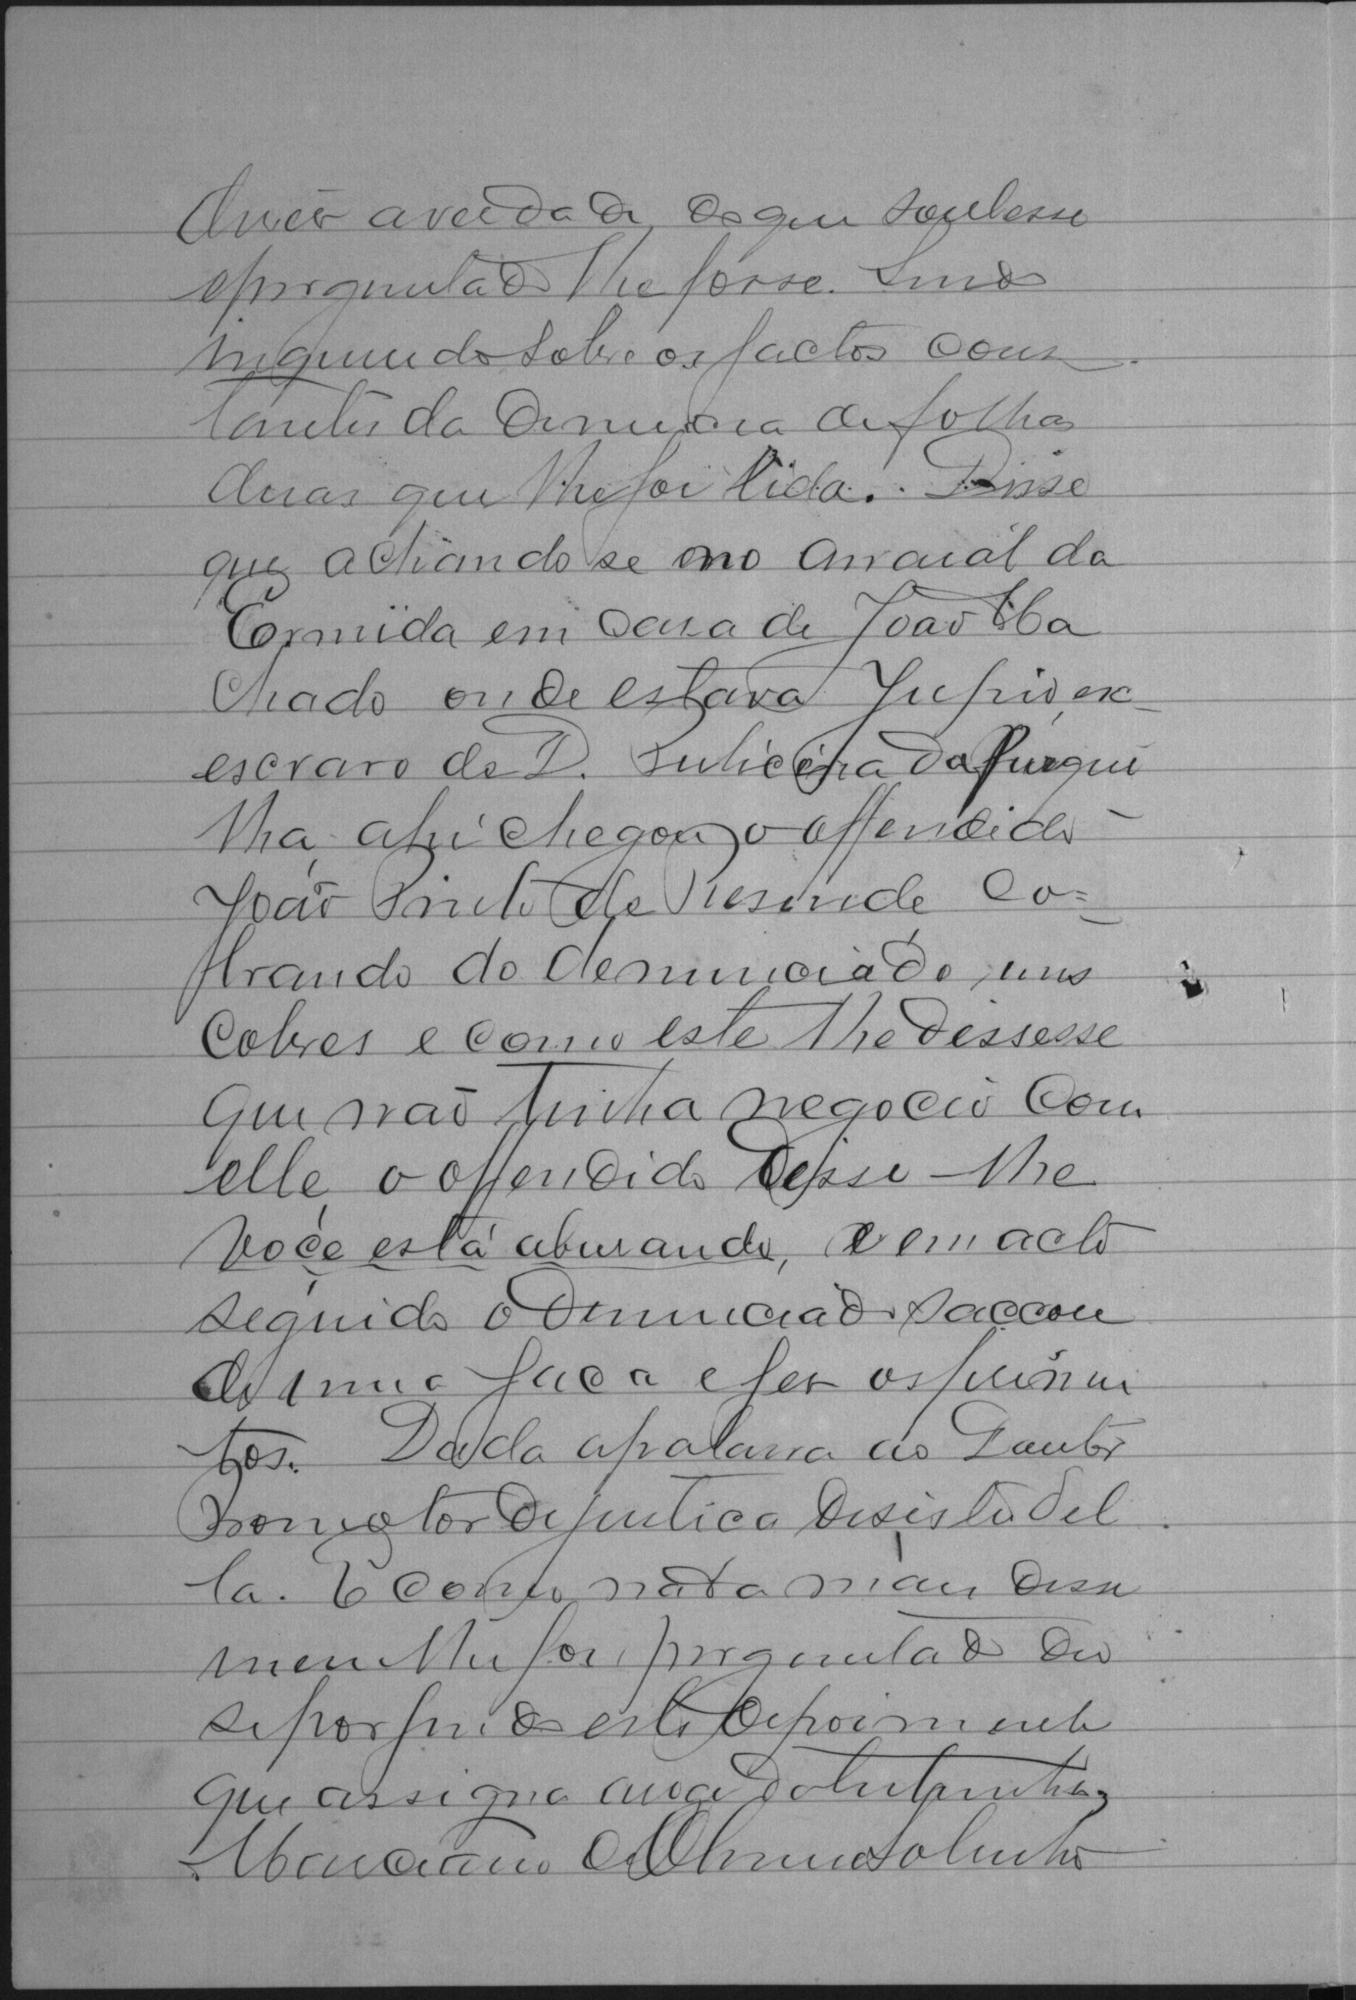 dizer a verdade do que soubesse
e perguntado lhe fosse. Sendo
inquirido sobre os factos cons
tantes da denuncia de folhas
duas que lhe foi lida. Disse
que achando se no arraial da
Ermida em casa de João Ma
chado onde estava ex
escravo de D. da
lha, ahi chegou o offendido
João Pinto de Resende co=
brando do denunciado uns
cobres e como este lhe dissesse
que não tinha negocio com
elle, o offendido disse-lhe
você está abusando, e em acto
seguido o denunciado saccou
de uma faca e fez os ferimen
tos. Dada a palavra ao Doutor
Promotor de justica desistio del
la. E como nada mais disse
nem lhe foi perguntado deu
se por findo este depoimento
que assigna a da testemunha,
Marciano